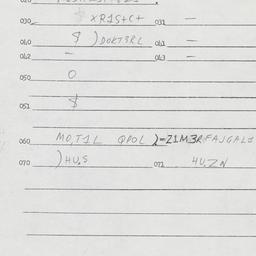 030 $ XR1S+C+ 031 —
040 $ )DOKT3RL 041 —
042 — 043 —
050 O
051 $
060 MO,T1L QPOL )=Z1M3RFAJGAL1
070 )HU,S 071 HU,ZN